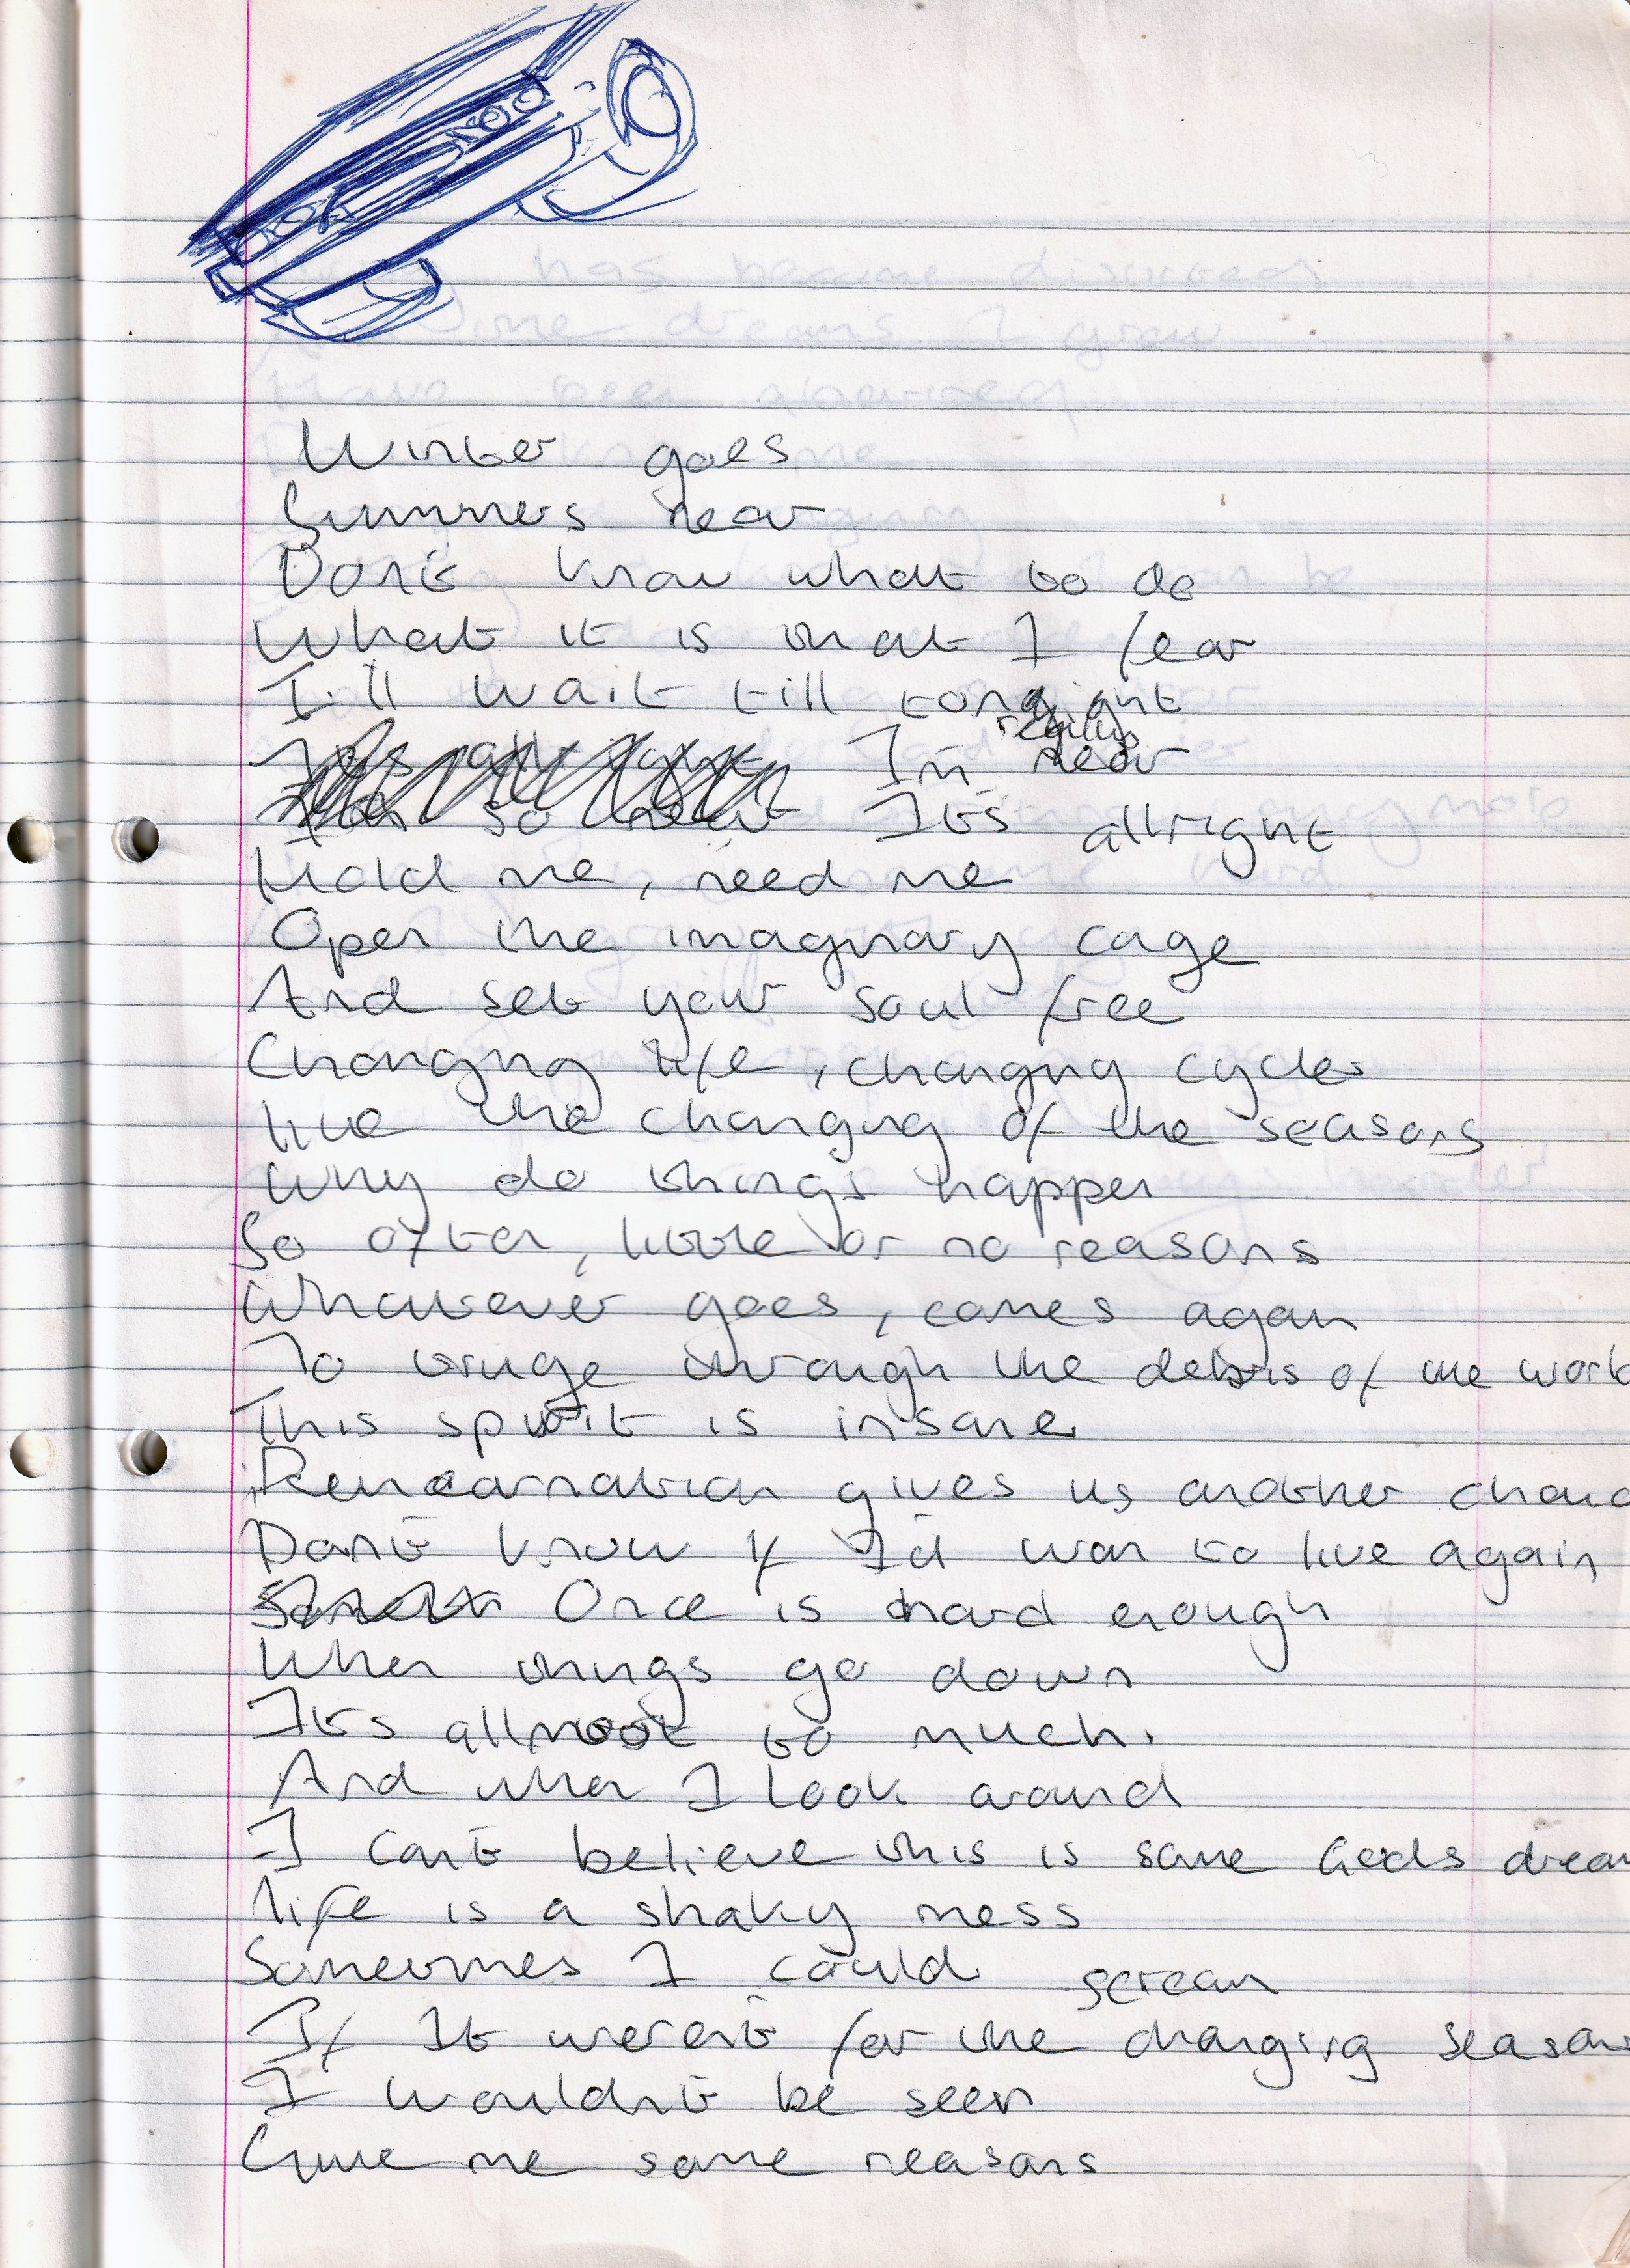 Winter goes
Summers near
Don't know what to do
What it is that I fear
I'll wait till tonight
Its all right I'm really near
I'm so near Its allright
Hold me, need me
Open the imaginary cage
And set your soul free
Changing life, changing cycles
like the changing of the seasons
Why do things happen
So often, little or no reasons
Whatever goes, comes again
To trudge through the debris of the world
This spirit is insane
Reincarnation gives us another chanc
Don't know if I'd wan to live again
Once is hard enough
When things go down
Its allmost to much.
And when I look around
I can't believe this is some Gods dream
life is a shaky mess
Sometimes I could scream
If It weren't for the changing seasons
I wouldn't be seen
Give me some reasons